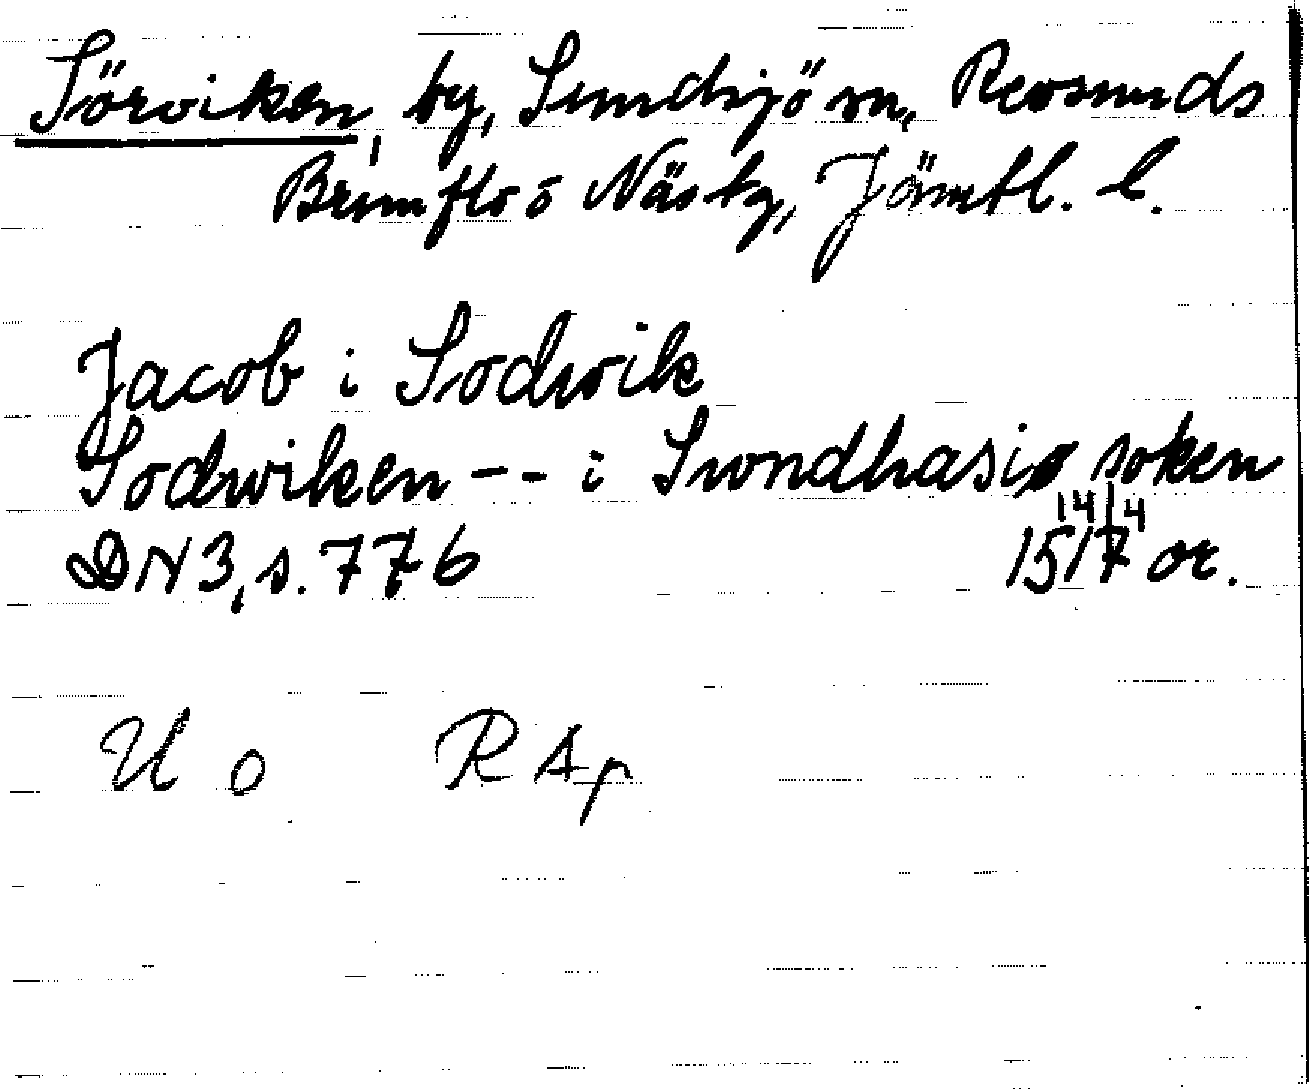 Sörviken, by, Sundsjö sn, Revsunds
Brunflo o Näs tg, Jämtl. l.
Jacob i Sodwik
Sodwiken -- i Swndhasiø soken
DN 3, s. 776 1517 14/4 or.
U o RAp